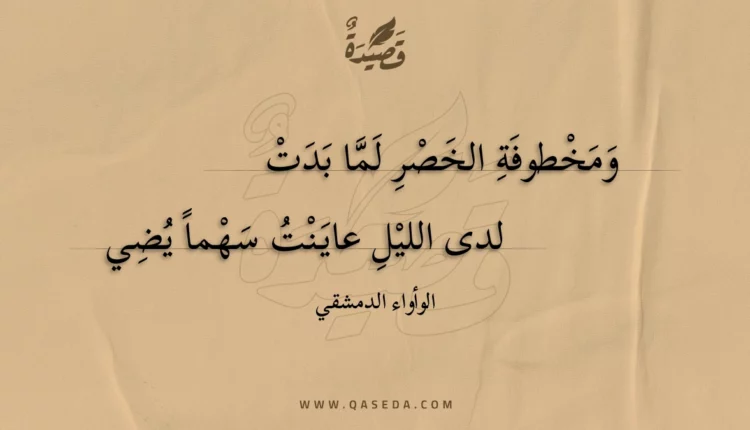 قَصِيدَةٌ
وَمَخْطوفَةِ الخَصْرِ لَمَّا بَدَتْ
لدى الليْلِ عايَنْتُ سَهْماً يُضِي
الوأواء الدمشقي
WWW.QASEDA.COM